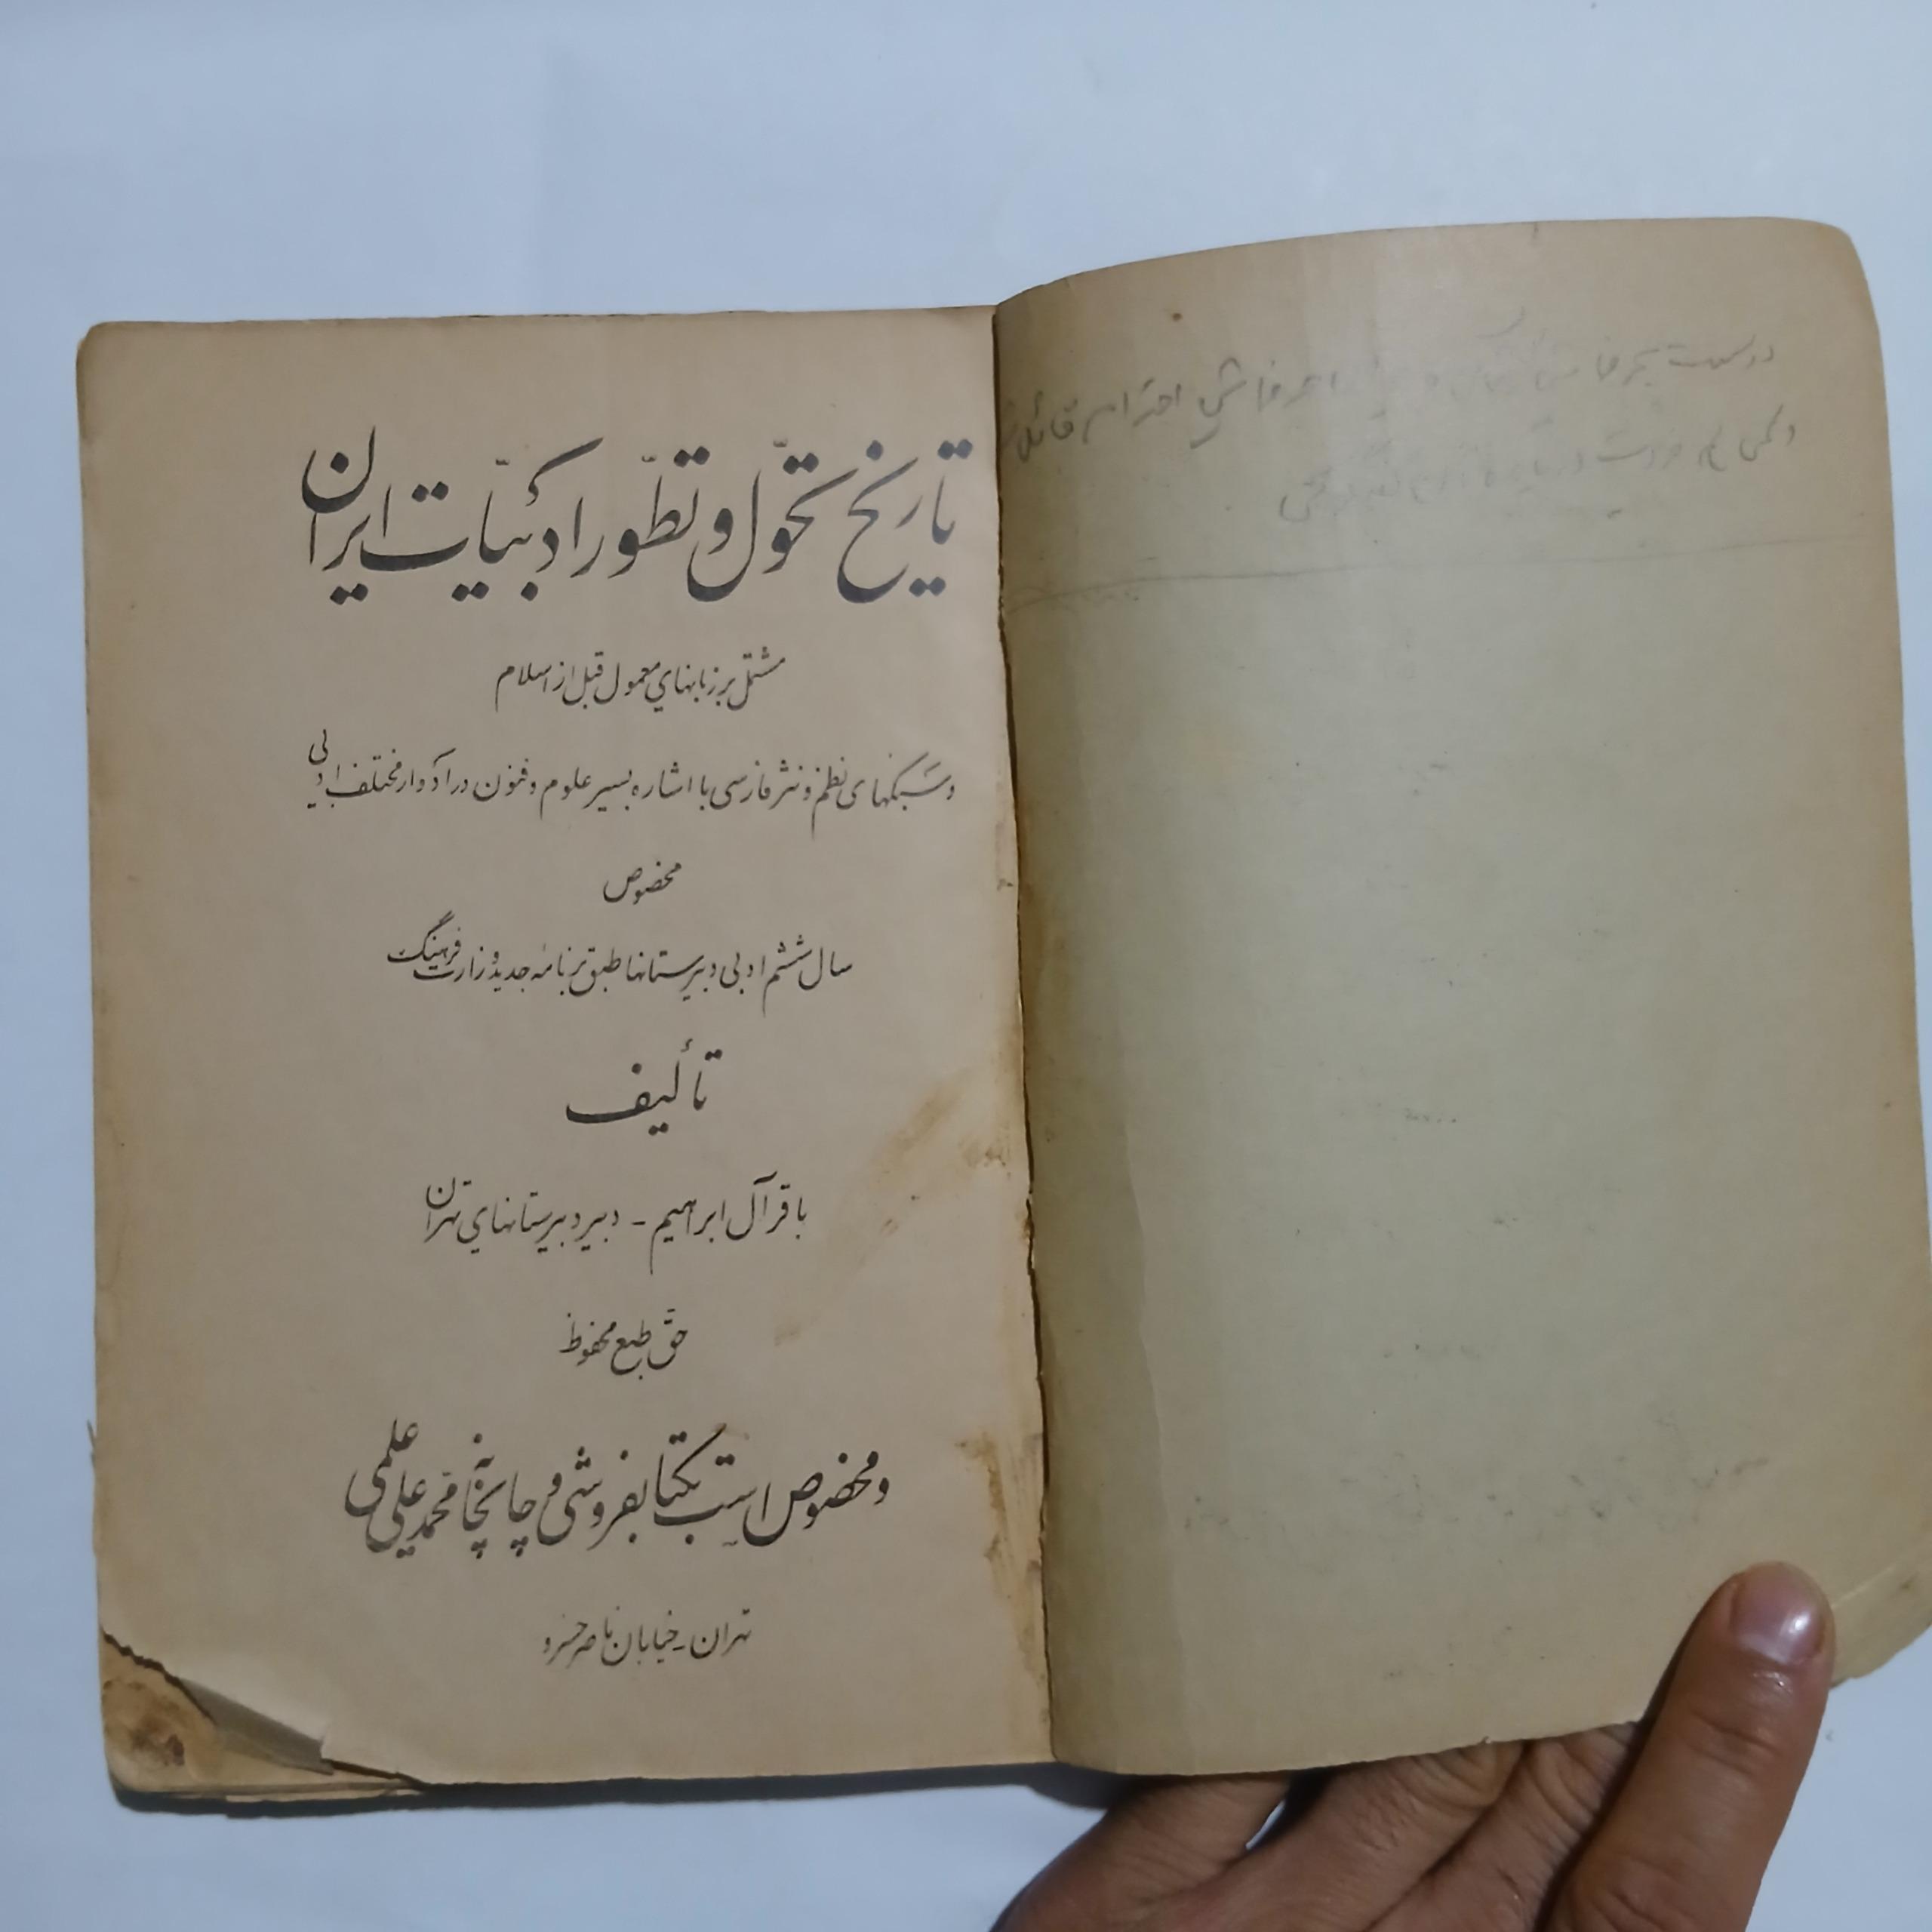 تاریخ تحوّل و تطوّر ادبیّات ایران
مشتمل بر زبانهای معمول قبل از اسلام
و سبکهای نظم و نثر فارسی با اشاره بسیر علوم و فنون در ادوار مختلف ادبی
مخصوص
سال ششم ادبی دبیرستانها طبق برنامه جدید وزارت فرهنگ
تألیف
باقر آل ابراهیم - دبیر دبیرستانهای تهران
حقّ طبع محفوظ
و مخصوص است بکتابفروشی و چاپخانه محمّد علی علمی
تهران - خیابان ناصر خسرو